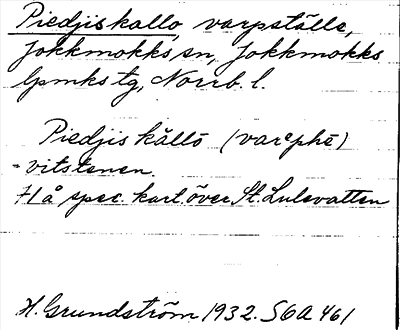 Piedjiskallo, varpställe,
Jokkmokks sn, Jokkmokks
lpmks tg, Norrb. l.
Piedjis kållō (varᵉphē)
= vitstenen.
71 å spec. kart. över St. Lulevatten
H. Grundström 1932. SOA 461